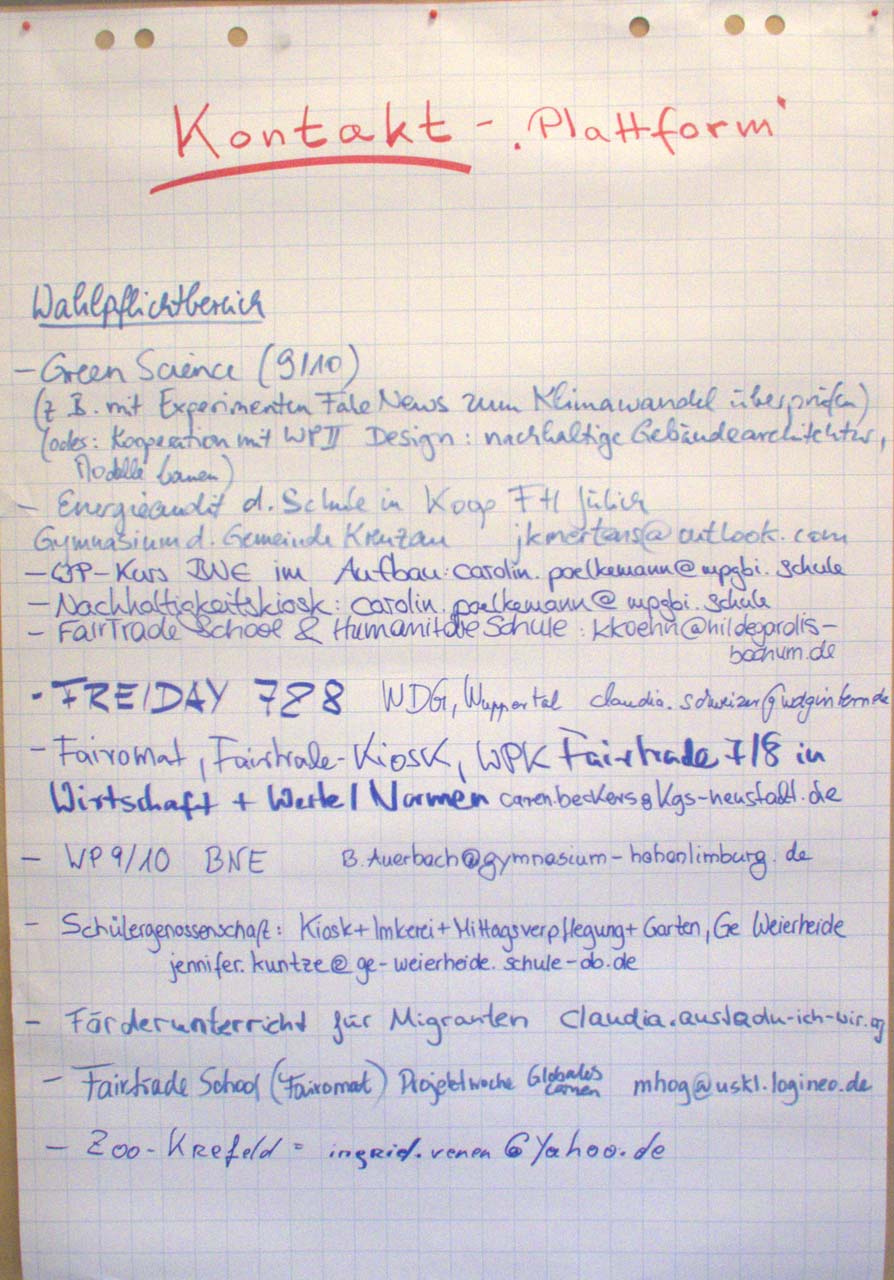 Kontakt - "Plattform"
Wahlpflichtbereich
- Green Science (9/10)
(z B. mit Experimenten Fake News zum Klimawandel überprüfen)
(oder: Kooperation mit WP II Design: nachhaltige Gebäudearchitektur,
Modelle bauen)
- Energieaudit d. Schule in Koop FH Jülich
Gymnasium d. Gemeinde Kreuzau jkmertens@outlook.com
- WP-Kurs BNE im Aufbau: carolin.poelkemann@mpgbi.schule
- Nachhaltigkeitskiosk: carolin.poelkemann@mpgbi.schule
- FairTrade School & Humanitäre Schule: kkoehn@hildegardis-
bochum.de
- FREI DAY 7 & 8 WDG, Wuppertal claudia.schweizer@wdgintern.de
- Fairomat, Fairtrade-Kiosk, WPK Fairtrade 7/8 in
Wirtschaft + Werte/Normen caren.beckers@kgs-neustadt.de
- WP 9/10 BNE B.Auerbach@gymnasium-hohenlimburg.de
- Schülergenossenschaft: Kiosk + Imkerei + Mittagsverpflegung + Garten, Ge Weierheide
jennifer.kuntze@ge-weierheide.schule-ob.de
- Förderunterricht für Migranten
- Fairtrade School (Fairomat) Projektwoche Globales Lernen mhog@uskl.logineo.de
- Zoo-Krefeld = ingrid.venen@Yahoo.de